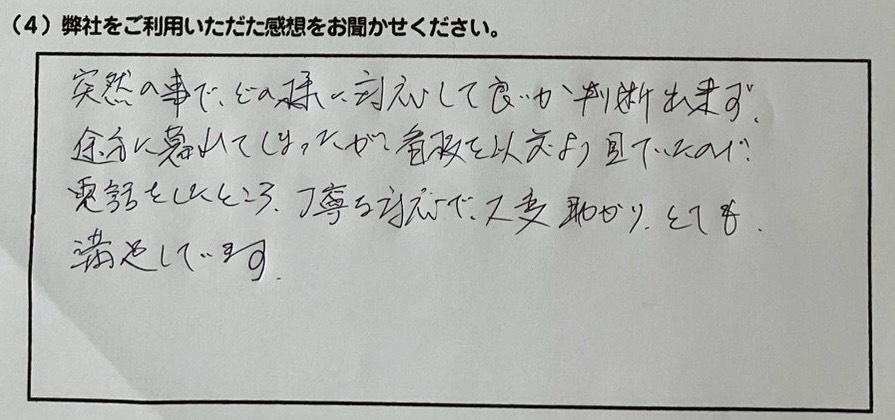 （4）弊社をご利用いただた感想をお聞かせください。
突然の事で、どの様に対応して良いか判断出来ず、
途方に暮れてしまったが、看板を以前より見ていたので、
電話をしたところ、丁寧な対応で、大変助かり、とても、
満足しています。